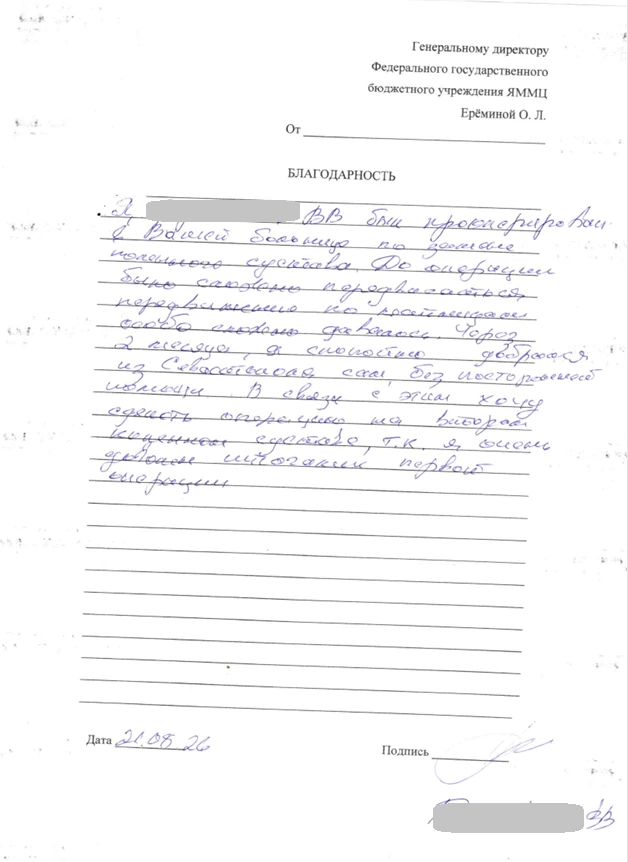 Генеральному директору
Федерального государственного
бюджетного учреждения ЯММЦ
Ерёминой О. Л.
От
БЛАГОДАРНОСТЬ
Я, ВВ был прооперирован
в Вашей больнице по замене
коленного сустава. До операции
было сложно передвигаться,
передвижение по лестницам
особо сложно давалось. Через
2 месяца, я спокойно добрался
из Севастополя сам, без посторонней
помощи. В связи с этим хочу
сделать операцию на втором
коленном суставе, т.к. я очень
доволен первой
операции
Дата 21.08 26
Подпись